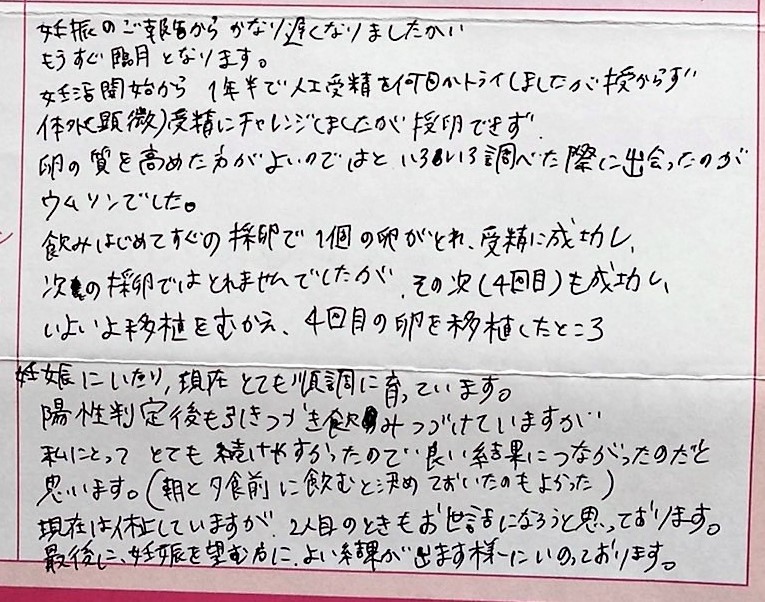 妊娠のご報告からかなり遅くなりましたがい
もうすぐ臨月となります。
妊活開始から 1年半で人工受精を何回かトライしましたが授からず
体外(顕微)受精にチャレンジしましたが採卵できず.
卵の質を高めた方がよいのではといろいろ調べた際に出会ったのが
ウムリンでした。
飲みはじめてすぐの採卵で1個の卵がとれ、受精に成功し、
次の採卵ではとれませんでしたが、その次(4回目)も成功し、
いよいよ移植をむかえ、4回目の卵を移植したところ
妊娠にいたり,現在とても順調に育っています。
陽性判定後も引きつづき飲みつづけていますが
私にとって とても続けやすかったので良い結果につながったのだと
思います。(朝と夕食前に飲むと決めておいたのもよかった)
現在は休止していますが、2人目のときもお世話になろうと思っております。
最後に、妊娠を望む方に、よい結果が出ます様にいのっております。